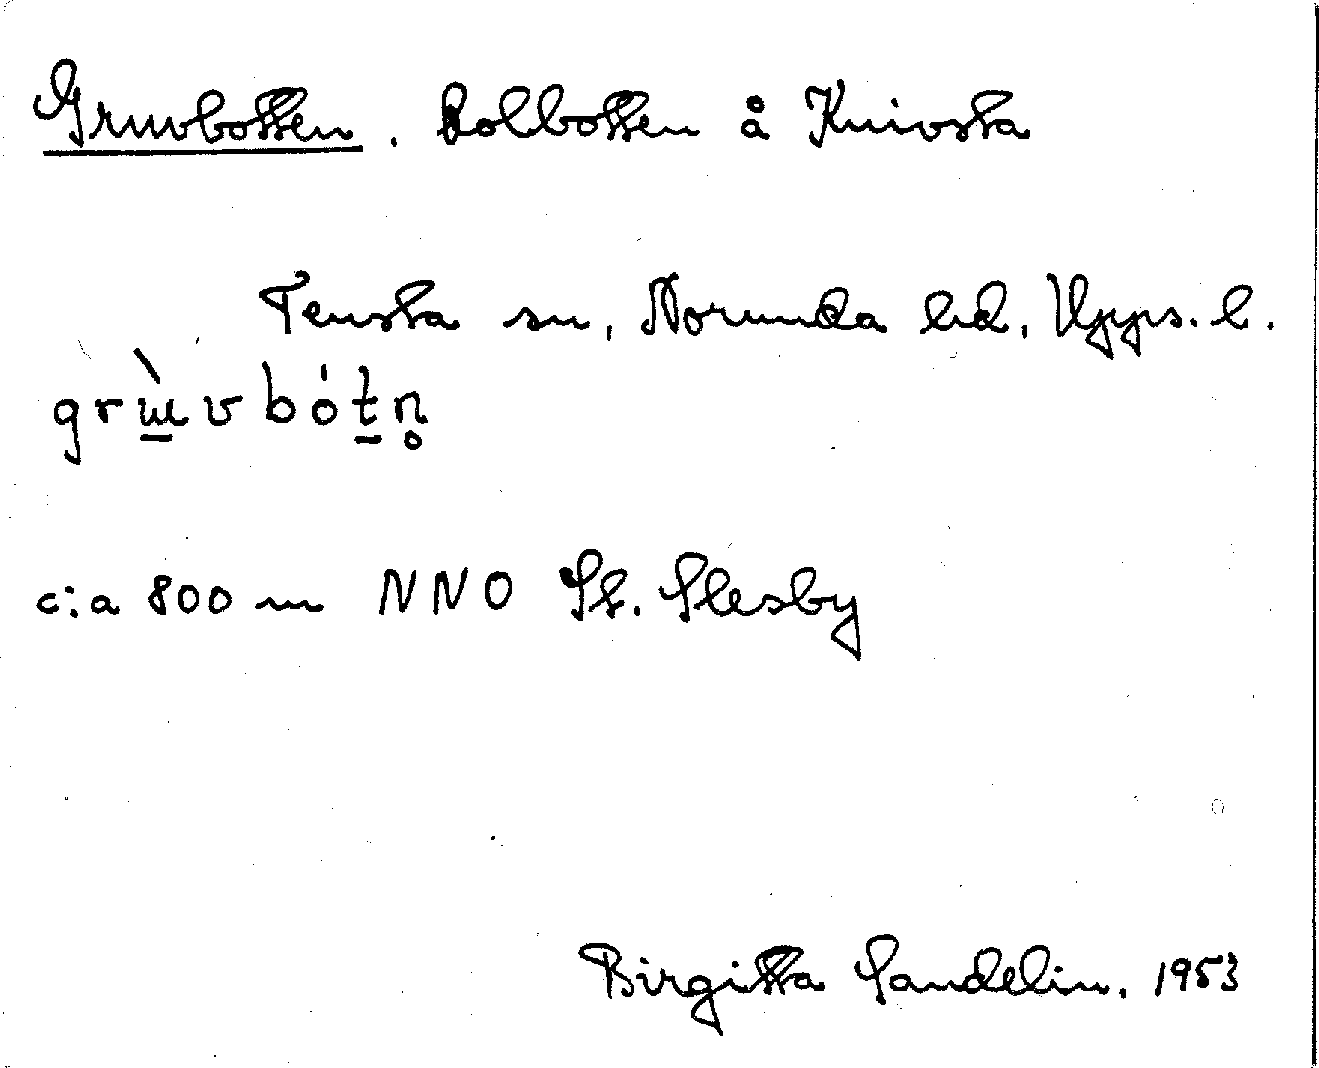 Gruvbotten. Kolbotten å Knivsta
Tensta sn, Norunda hd, Upps. l.
grùvbótn̥
c:a 800 m NNO St. Älesby
Birgitta Sandelin. 1953